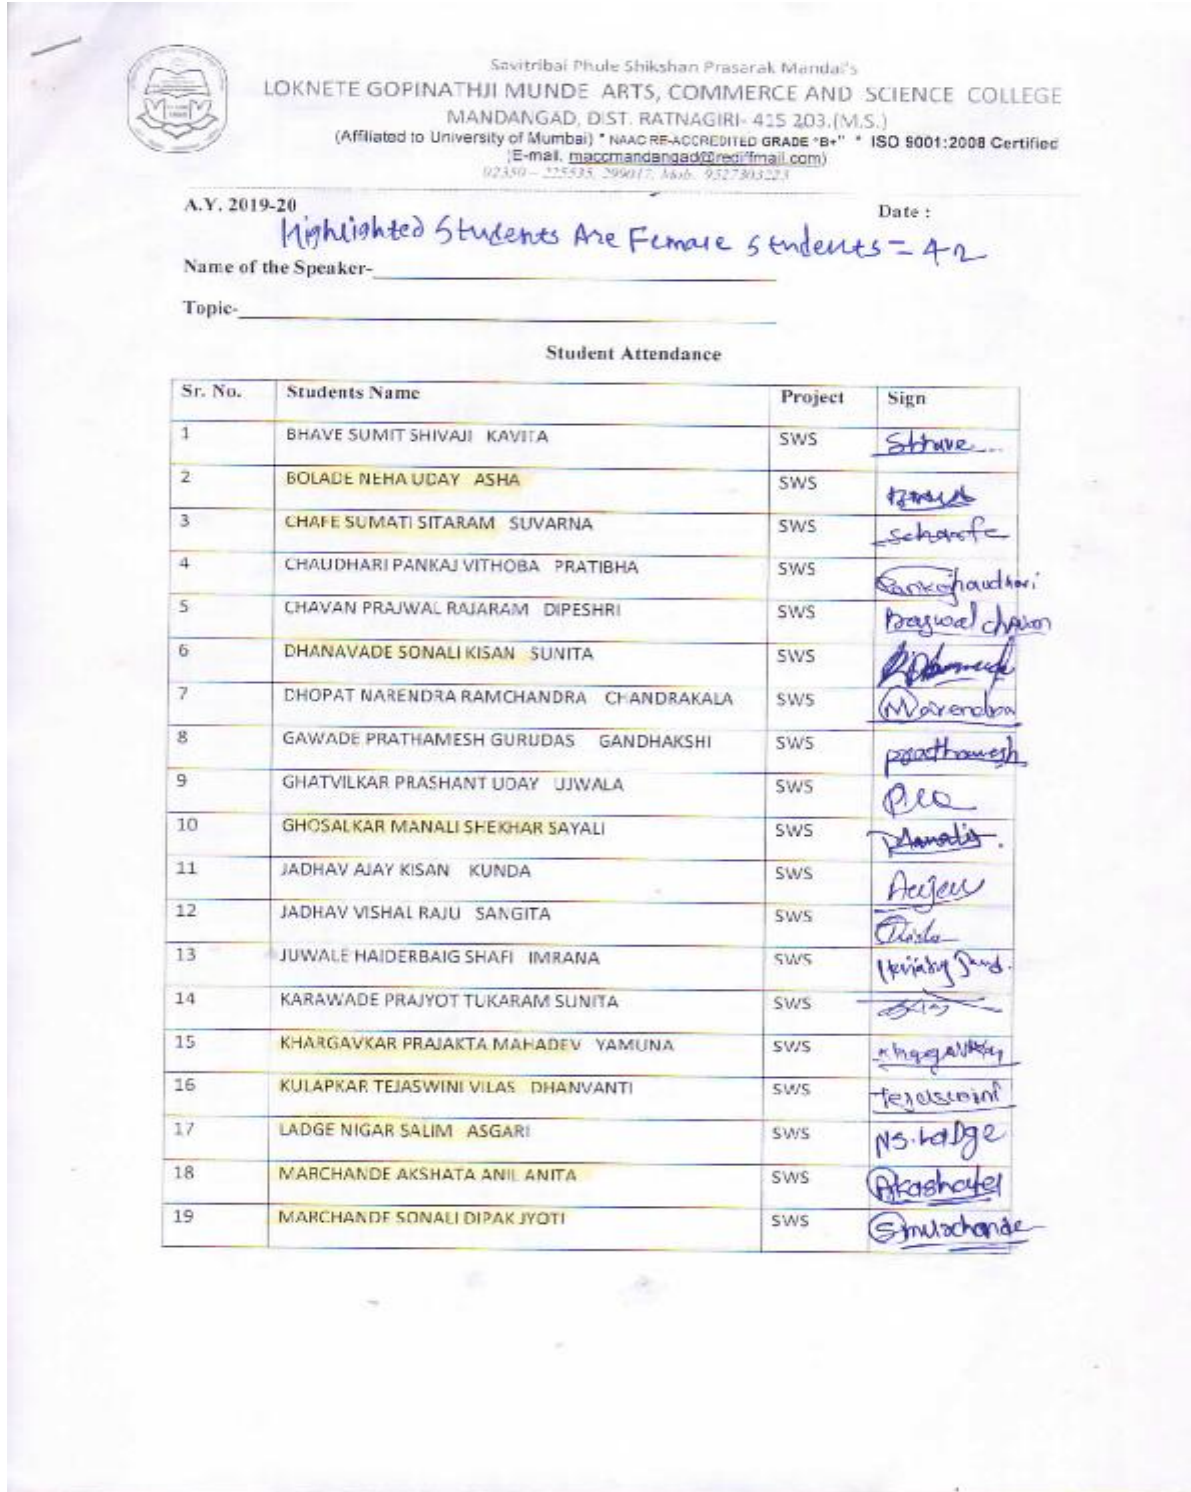 Savitribai Phule Shikshan Prasarak Mandal's
LOKNETE GOPINATHJI MUNDE ARTS, COMMERCE AND SCIENCE COLLEGE
MANDANGAD, DIST. RATNAGIRI- 415 203.(M.S.)
(Affiliated to University of Mumbai) * NAAC RE-ACCREDITED GRADE "B+" * ISO 9001:2008 Certified
(E-mail. maccmandangad@rediffmail.com)
02350 – 225535, 299017, Mob. 9527303223
A.Y. 2019-20
Date :
Highlighted Students Are Female students = 42
Name of the Speaker-
Topic-
Student Attendance
Sr. No. Students Name Project Sign
1 BHAVE SUMIT SHIVAJI KAVITA SWS SBhave
2 BOLADE NEHA UDAY ASHA SWS
3 CHAFE SUMATI SITARAM SUVARNA SWS
4 CHAUDHARI PANKAJ VITHOBA PRATIBHA SWS
5 CHAVAN PRAJWAL RAJARAM DIPESHRI SWS
6 DHANAVADE SONALI KISAN SUNITA SWS
7 DHOPAT NARENDRA RAMCHANDRA CHANDRAKALA SWS Narendra
8 GAWADE PRATHAMESH GURUDAS GANDHAKSHI SWS prathamesh
9 GHATVILKAR PRASHANT UDAY UJWALA SWS
10 GHOSALKAR MANALI SHEKHAR SAYALI SWS
11 JADHAV AJAY KISAN KUNDA SWS
12 JADHAV VISHAL RAJU SANGITA SWS
13 JUWALE HAIDERBAIG SHAFI IMRANA SWS
14 KARAWADE PRAJYOT TUKARAM SUNITA SWS
15 KHARGAVKAR PRAJAKTA MAHADEV YAMUNA SWS
16 KULAPKAR TEJASWINI VILAS DHANVANTI SWS
17 LADGE NIGAR SALIM ASGARI SWS NS.Ladge
18 MARCHANDE AKSHATA ANIL ANITA SWS
19 MARCHANDE SONALI DIPAK JYOTI SWS